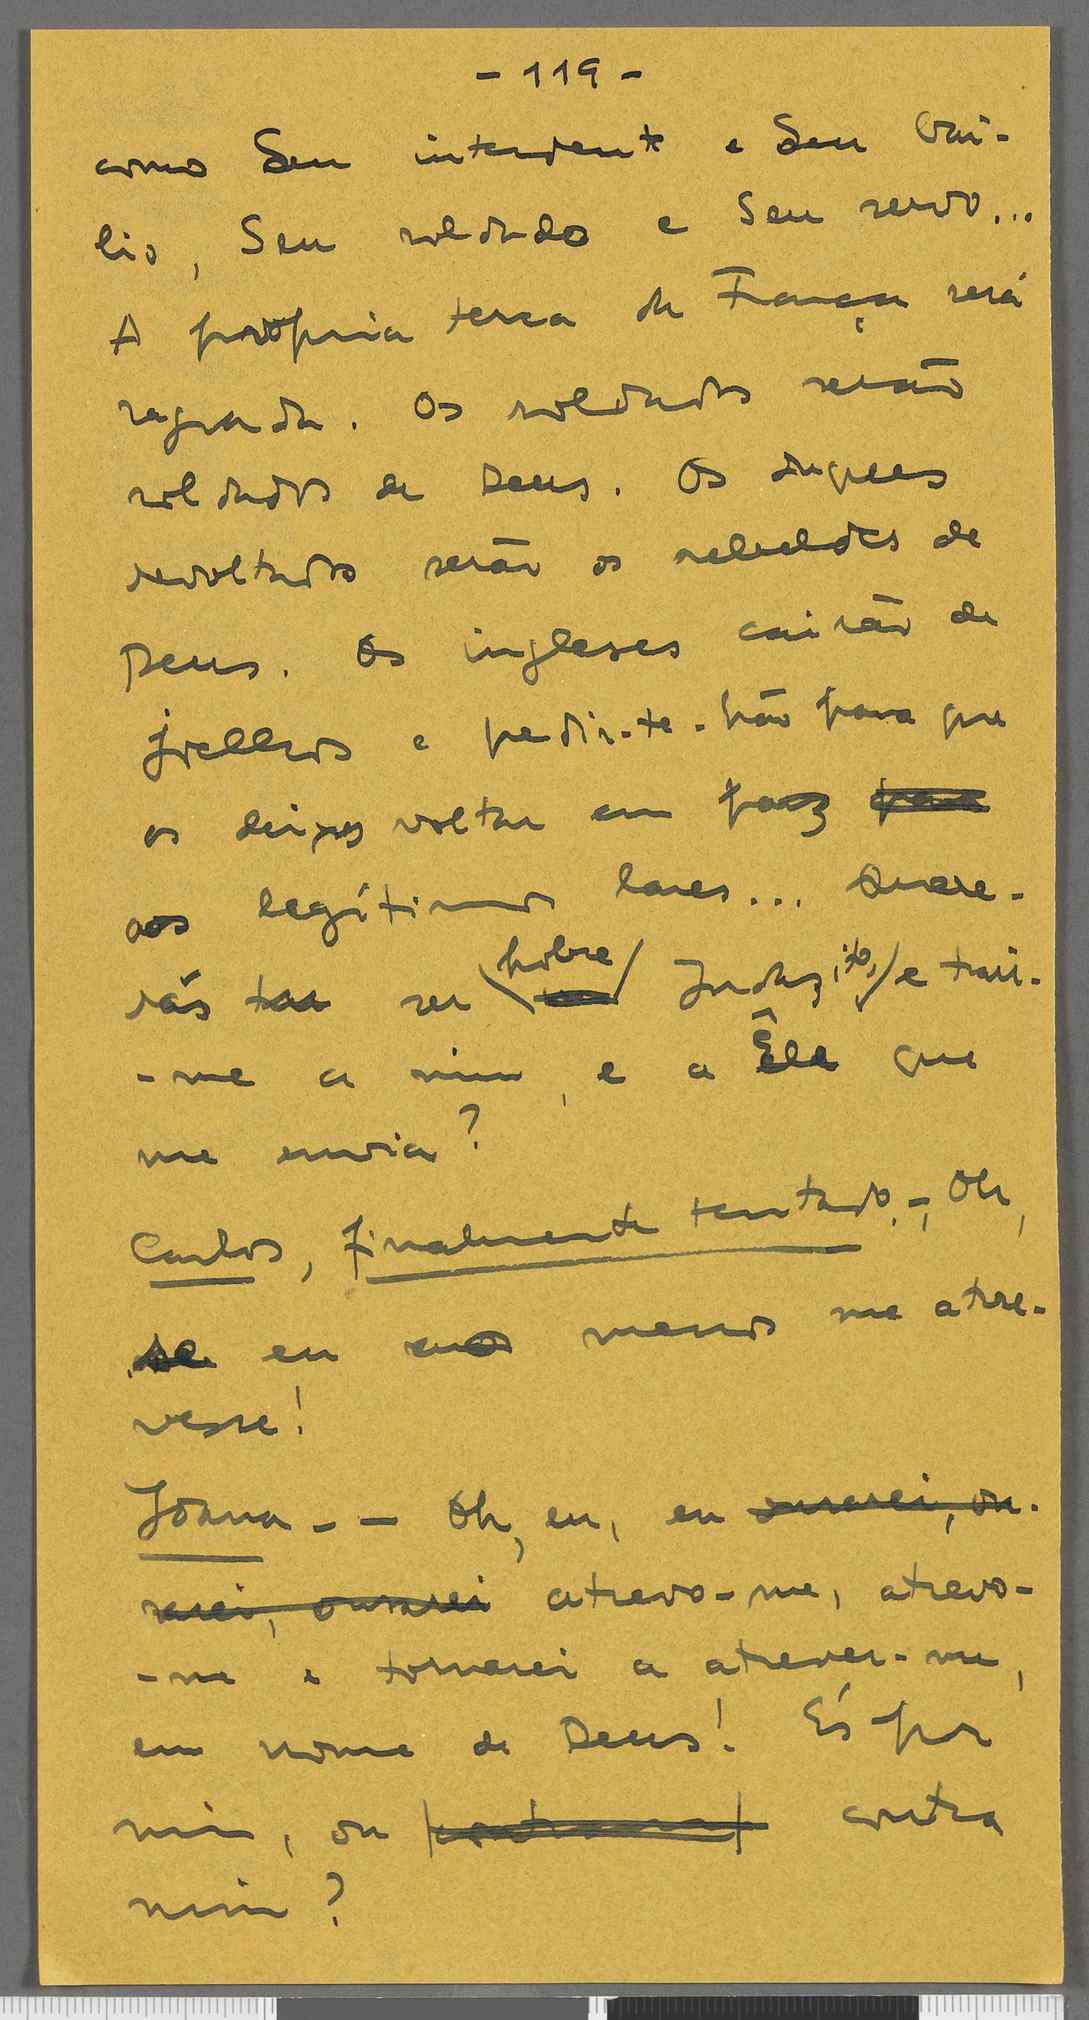 - 119 -
como Seu intendente e Seu bai-
lio, Seu soldado e Seu servo...
A própria terra de França será
sagrada. Os soldados serão
soldados de Deus. Os duques
revoltados serão os rebeldes de
Deus. Os ingleses cairão de
joelhos e pedir-te-hão para que
os deixes voltar em paz para
aos legítimos lares... Quere-
rás tu ser pobre Judas, e trair-
-me a mim, e a Êle que
me envia?
Carlos, finalmente tentado. -, Oh,
se eu ao menos me atre-
vesse!
Joana - - Oh, eu, eu ousarei, ou-
sarei, ousarei atrevo-me, atrevo-
-me e tornarei a atrever-me,
em nome de Deus! És por
mim, ou contra
mim?